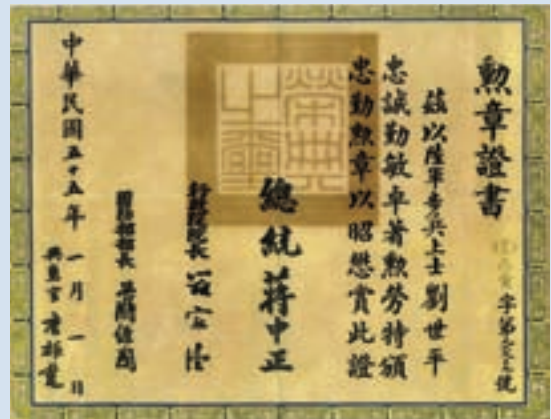 勳章證書
字第
號
茲以陸軍步兵上士劉世平
忠誠勤敏卓著勳勞特頒
忠勤勲章以昭懋賞此證
總統蔣中正
行政院長
國防部部長 蔣經國
中華民國五十五年一月一日
典璽官
榮典之璽